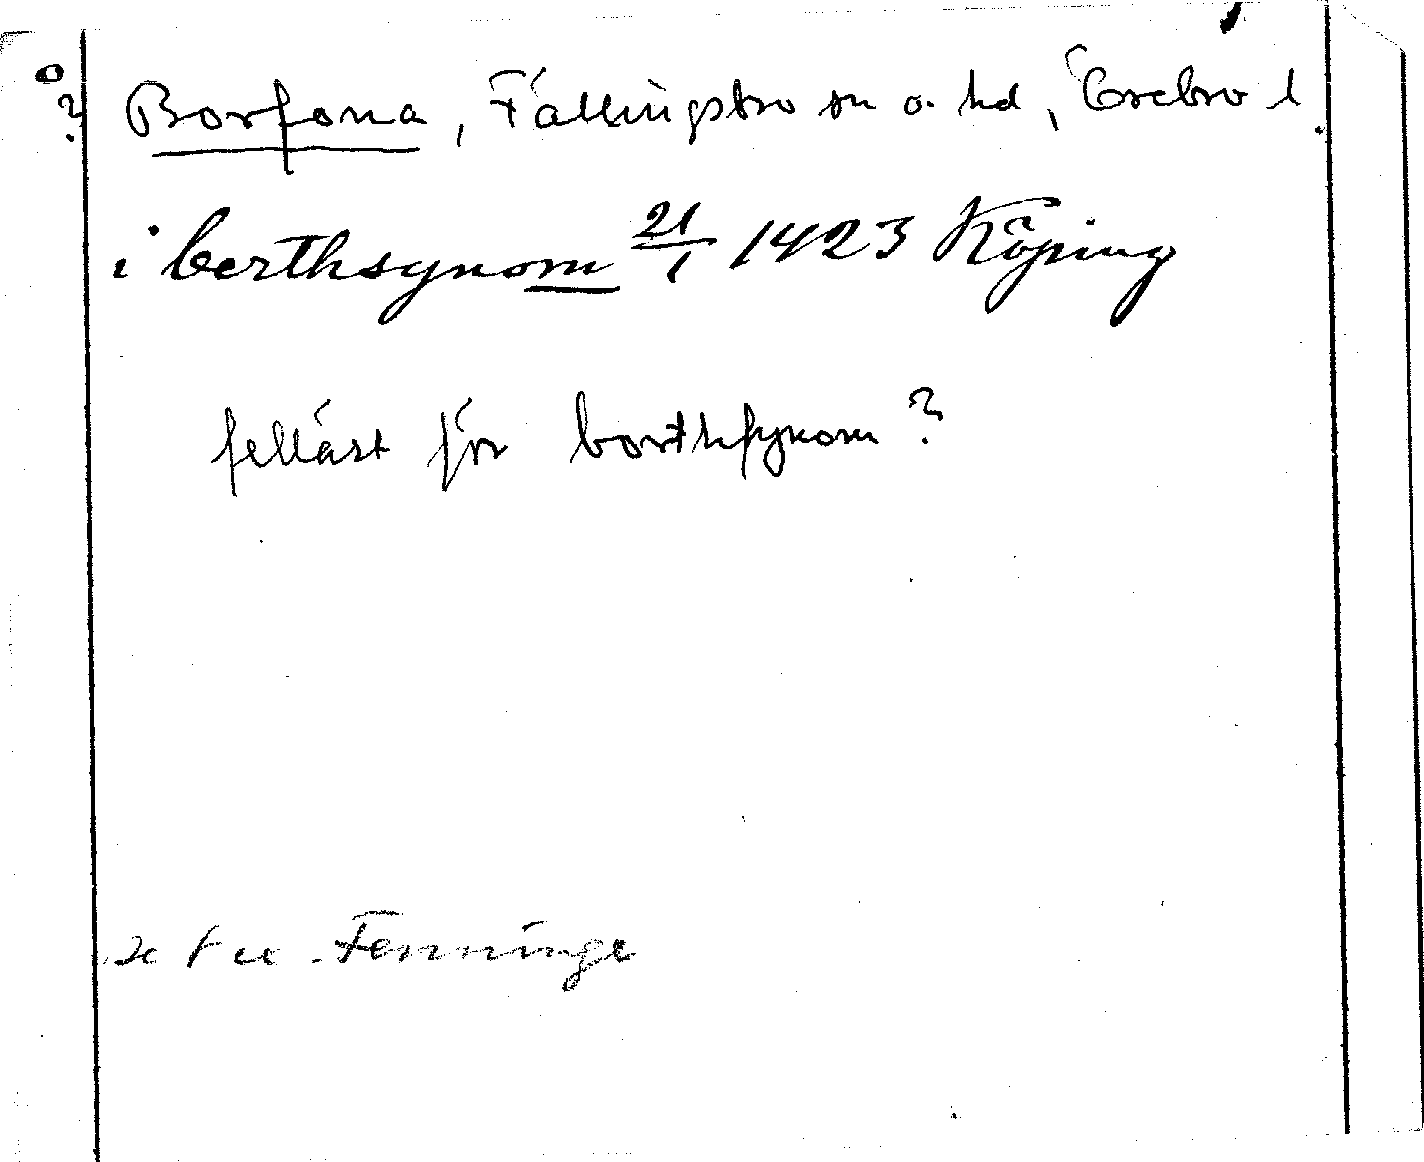 ?
Borfona, Fällingsbro sn o. hd, Örebro l
i berthsynom 21/1 1423 Köping
felläst för borthfynom?
Fenninge